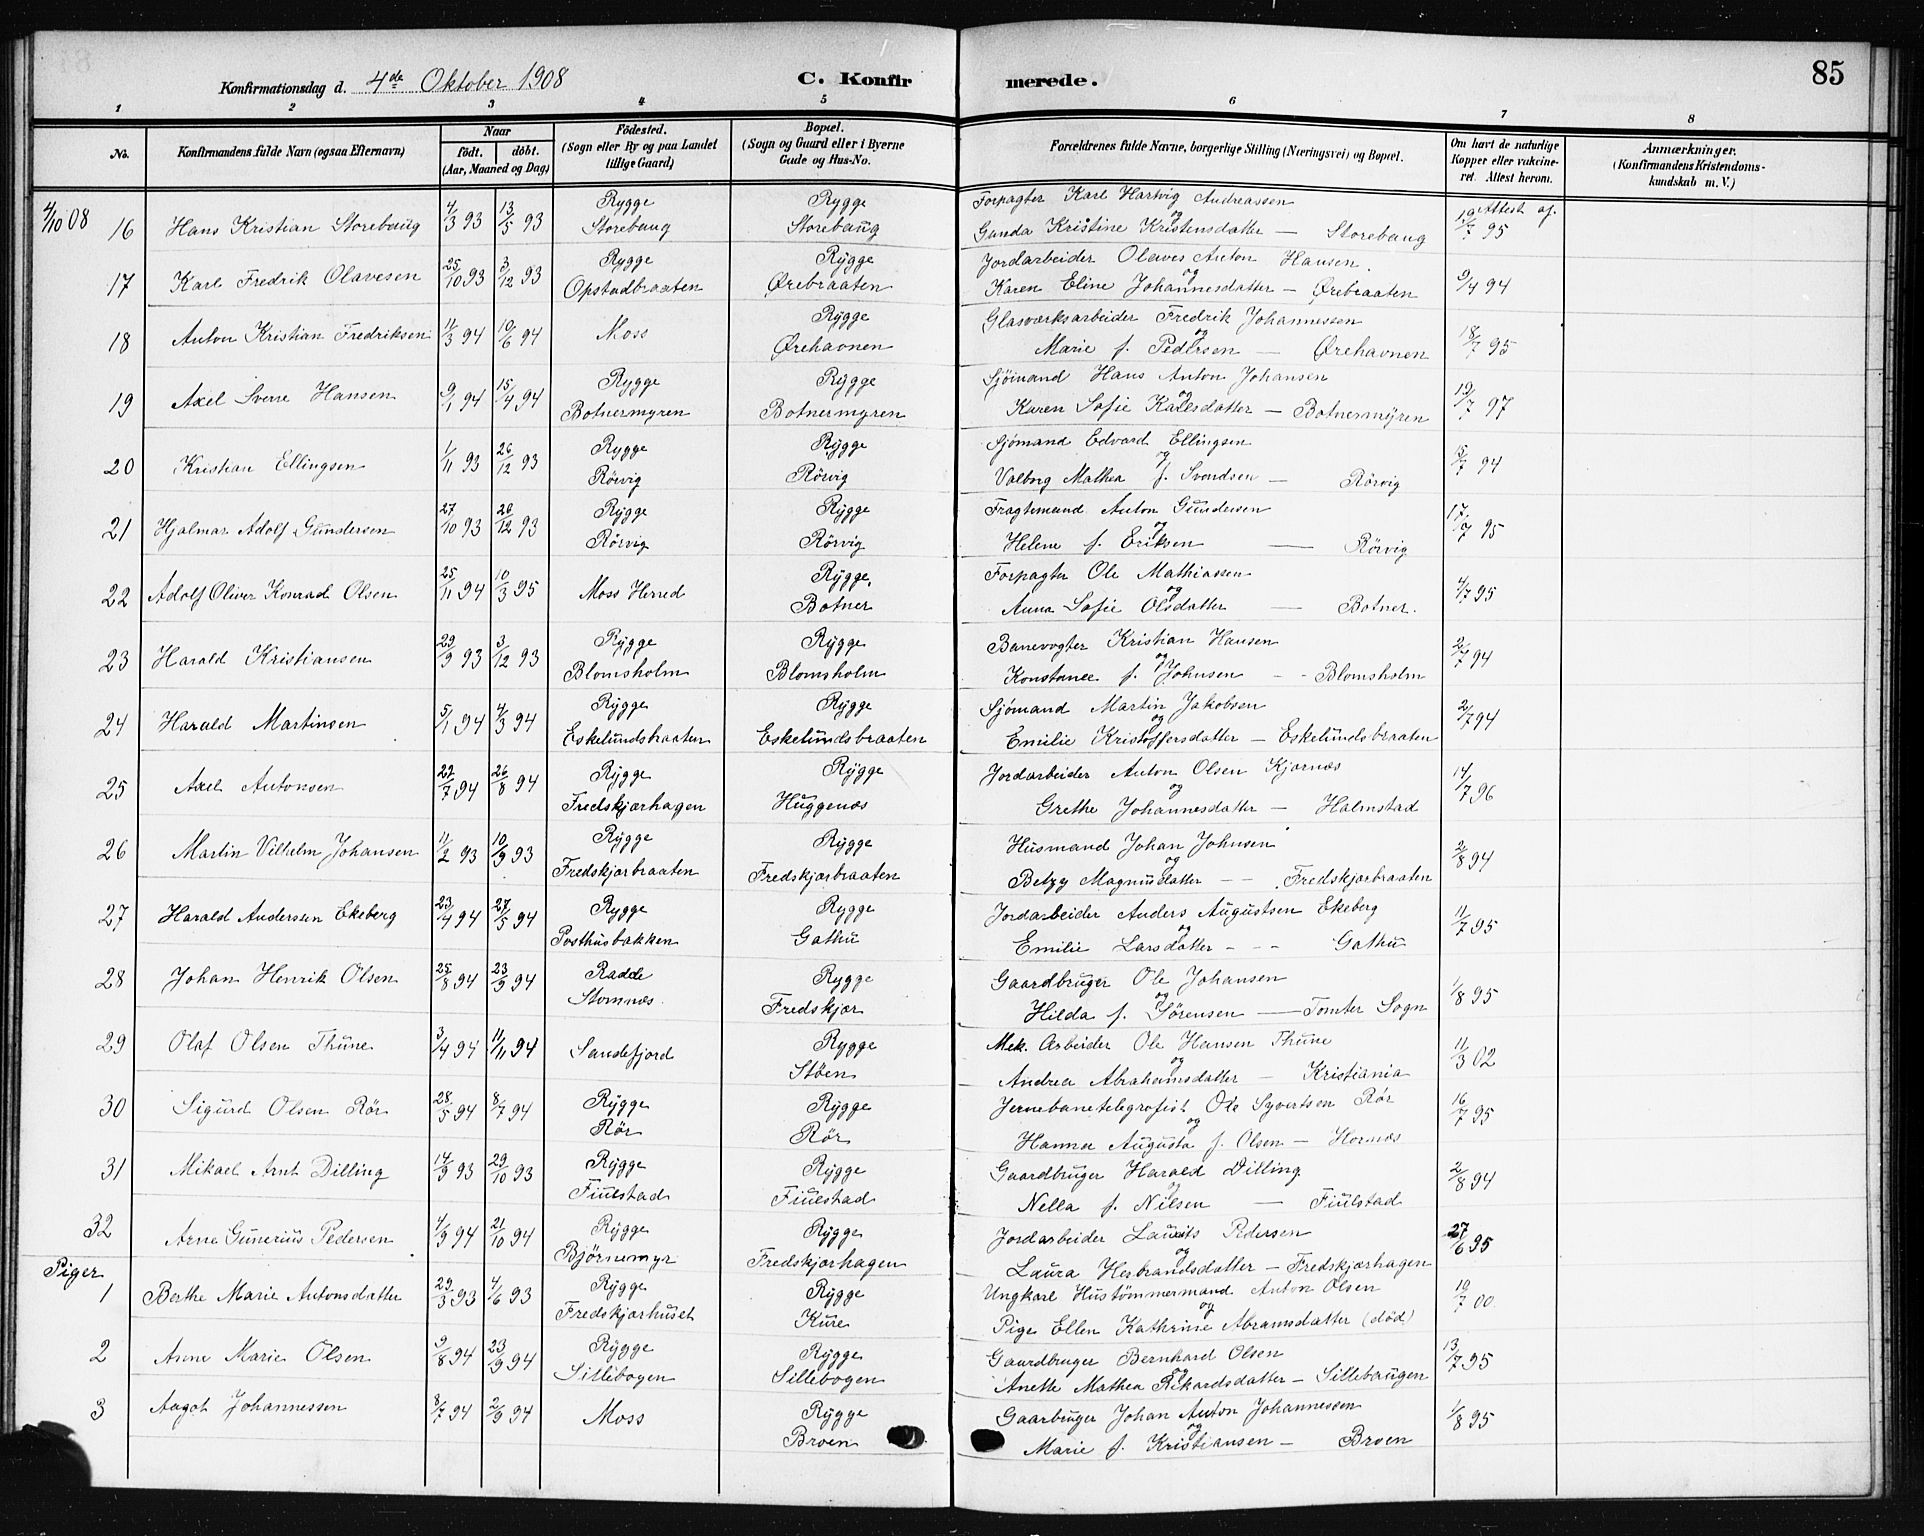 Konfirmationsdag d. 4de Oktober 1908 C. Konfirmerede. 85
1 2 3 4 5 6 7 8
No. Konfirmandens fulde Navn (ogsaa Efternavn) Naar født. døbt. (Aar, Maaned og Dag) Fødested. (Sogn eller By og paa Landet tillige Gaard) Bopæl. (Sogn og Gaard eller i Byerne Gade og Hus-No. Forældrenes fulde Navne, borgerlige Stilling (Næringsvei) og Bopæl. Om havt de naturlige Kopper eller vakcineret. Attest herom. Anmærkninger. (Konfirmandens Kristendomskundskab m. V.)
4/10 08 16 Hans Kristian Storebaug 4/3 93 13/5 93 Rygge Storebaug Rygge Storebaug Forpagter Karl Hartvig Andreassen og Gunda Kristine Kristensdatter — Storebaug Attest af. 19/7 95
17 Karl Fredrik Olavesen 25/10 93 3/12 93 Rygge Opstadbraaten Rygge Ørebraaten Jordarbeider Olaves Anton Hansen og Karen Eline Johannesdatter — Ørebraaten 9/4 94
18 Anton Kristian Fredriksen 11/3 94 10/6 94 Moss Rygge Ørehavnen Glasværksarbeider Fredrik Johannessen og Marie f. Pedersen — Ørehavnen 18/7 95
19 Axel Sverre Hansen 9/1 94 15/4 94 Rygge Botnermyren Rygge Botnermyren Sjömand Hans Anton Johansen og Karen Sofie Karlsdatter — Botnermyren 19/7 97
20 Kristian Ellingsen 1/11 93 26/12 93 Rygge Rörvig Rygge Rörvig Sjömand Edvard Ellingsen og Valborg Mathea f. Svendsen — Rörvig 15/7 94
21 Hjalmar Adolf Gundersen 27/10 93 26/12 93 Rygge Rörvig Rygge Rörvig Fragtemand Anton Gundersen og Helene f. Eriksen — Rörvig 17/7 95
22 Adolf Oliver Konrad Olsen 25/11 94 10/3 95 Moss Herred Rygge Botner Forpagter Ole Mathiassen og Anna Sofie Olsdatter — Botner. 4/7 95
23 Harald Kristiansen 29/9 93 3/12 93 Rygge Blomsholm Rygge Blomsholm Banevogter Kristian Hansen og Konstance f. Johnsen - - Blomsholm 2/7 94
24 Harald Martinsen 5/1 94 4/3 94 Rygge Eskelundsbraaten Rygge Eskelundsbraaten Sjömand Martin Jakobsen og Emilie Kristoffersdatter — Eskelundsbraaten 2/7 94
25 Axel Antonsen 22/7 94 26/8 94 Rygge Fredskjærhagen Rygge Huggenæs Jordarbeider Anton Olsen Kjærnæs og Grethe Johannesdatter — Halmstad 14/7 96
26 Martin Vilhelm Johansen 11/2 93 10/9 93 Rygge Fredskjærbraaten Rygge Fredskjærbraaten Husmand Johan Johnsen og Betzy Magnusdatter - - Fredskjærbraaten 2/8 94
27 Harald Anderssen Ekeberg 23/4 94 27/5 94 Rygge Posthusbakken Rygge Gathu Jordarbeider Anders Augustsen Ekeberg og Emilie Larsdatter - - - Gathu 11/7 95
28 Johan Henrik Olsen 25/8 94 23/9 94 Radde Stomnæs. Rygge Fredskjær Gaardbruger Ole Johansen og Hilda f. Sörensen — Tomter Sogn 1/8 95
29 Olaf Olsen Thune 3/4 94 11/11 94 Sandefjord Rygge Stöen Mek. Arbeider Ole Hansen Thune og Andrea Abrahamsdatter — Kristiania 11/3 02
30 Sigurd Olsen Rör 28/5 94 8/7 94 Rygge Rör Rygge Rör Jernebanetelegrafist Ole Syvertsen Rör og Hanna Augusta f. Olsen — Hornæs 16/7 95
31 Mikael Arnt Dilling 14/9 93 29/10 93 Rygge Fiulstad Rygge Fiulstad Gaardbruger Harald Dilling og Nella f. Nilsen — Fiulstad 2/8 94
32 Arne Gunerius Pedersen 4/9 94 21/10 94 Rygge Bjørnemyr Rygge Fredskjærhagen Jordarbeider Laurits Pedersen og Laura Herbrandsdatter — Fredskjærhagen 27/6 95
Piger
1 Berthe Marie Antonsdatter 29/3 93 4/6 93 Rygge Fredskjærhuset Rygge Kure Ungkarl Hustömmermand Anton Olsen og Pige Ellen Kathrine Abramsdatter (död) 19/7 00.
2 Anne Marie Olsen 9/8 94 23/9 94 Rygge Sillebogen Rygge Sillebogen Gaardbruger Bernhard Olsen og Anette Mathea Rikardsdatter — Sillebaugen 13/7 95
3 Aagot Johannessen 8/7 94 2/9 94 Moss Rygge Broen Gaarbruger Johan Anton Johannessen og Marie f. Kristiansen — Broen 1/8 95